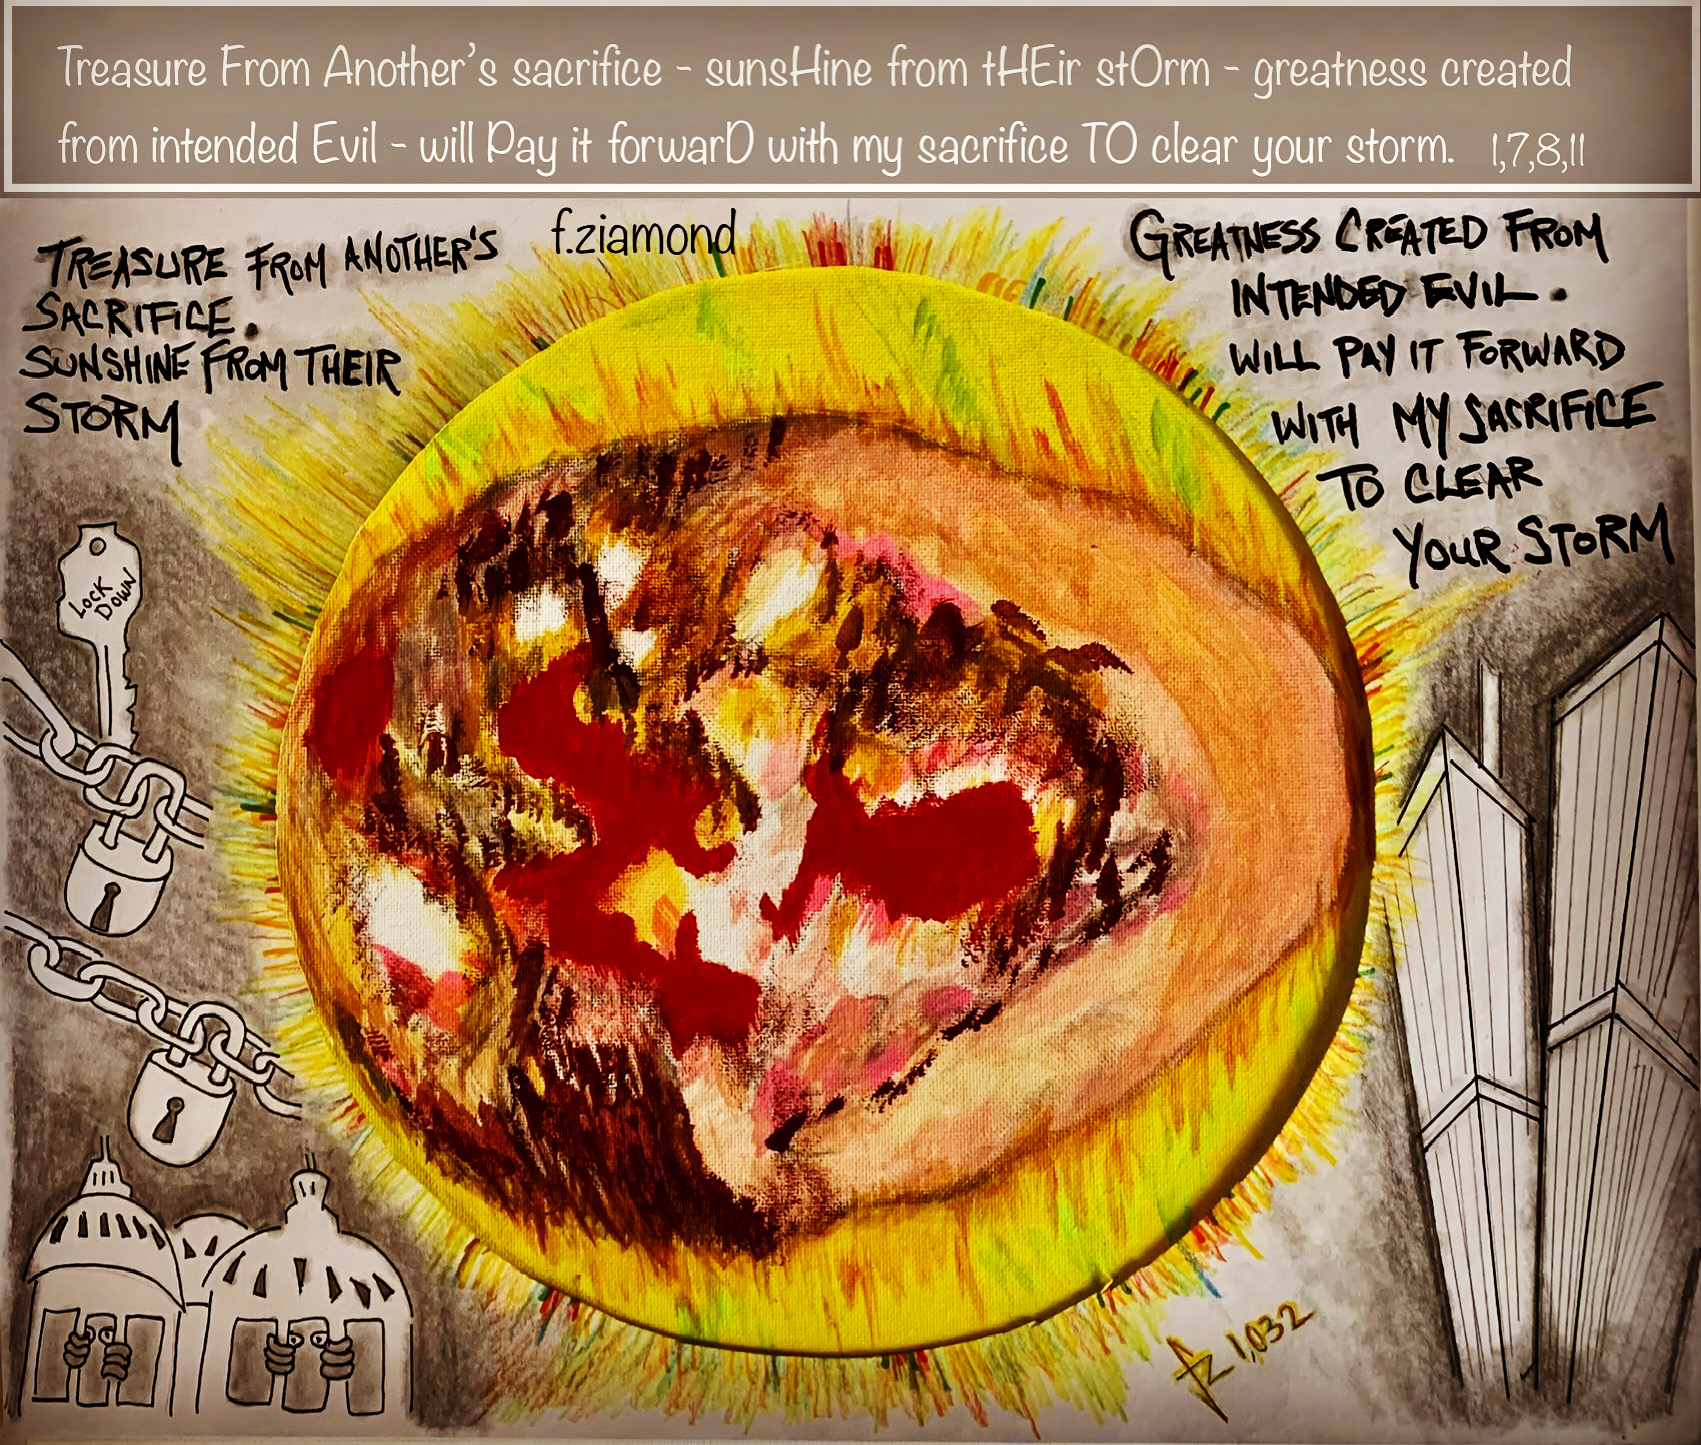 Treasure From Another's sacrifice - sunsHine from tHEir stOrm - greatness created
from intended Evil - will Pay it forwarD with my sacrifice TO clear your storm. 1,7,8,11
f.ziamond
TREASURE FROM ANOTHER'S
SACRIFICE.
SUNSHINE FROM THEIR
STORM
GREATNESS CREATED FROM
INTENDED EVIL.
WILL PAY IT FORWARD
WITH MY SACRIFICE
TO CLEAR
YOUR STORM
LOCK
DOWN
FZ 1,032